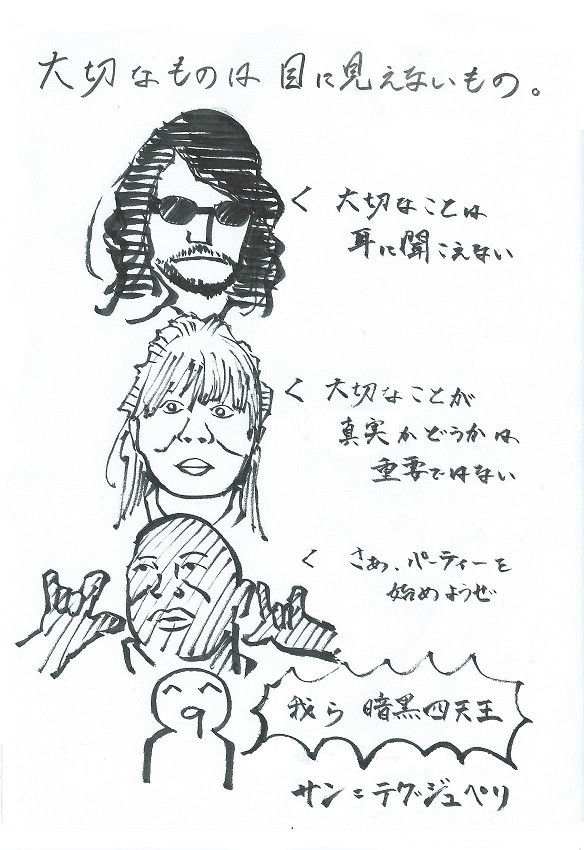 大切なものは 目に見えないもの。
大切なことは
耳に聞こえない
大切なことが
真実かどうかは
重要ではない
さあ、パーティーを
始めようぜ
我ら 暗黒四天王
サン=テグジュペリ